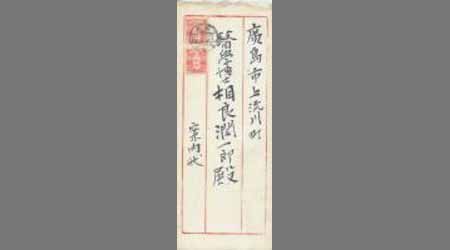 廣島市上流川町
醫學博士相良潤一郎殿
案内状